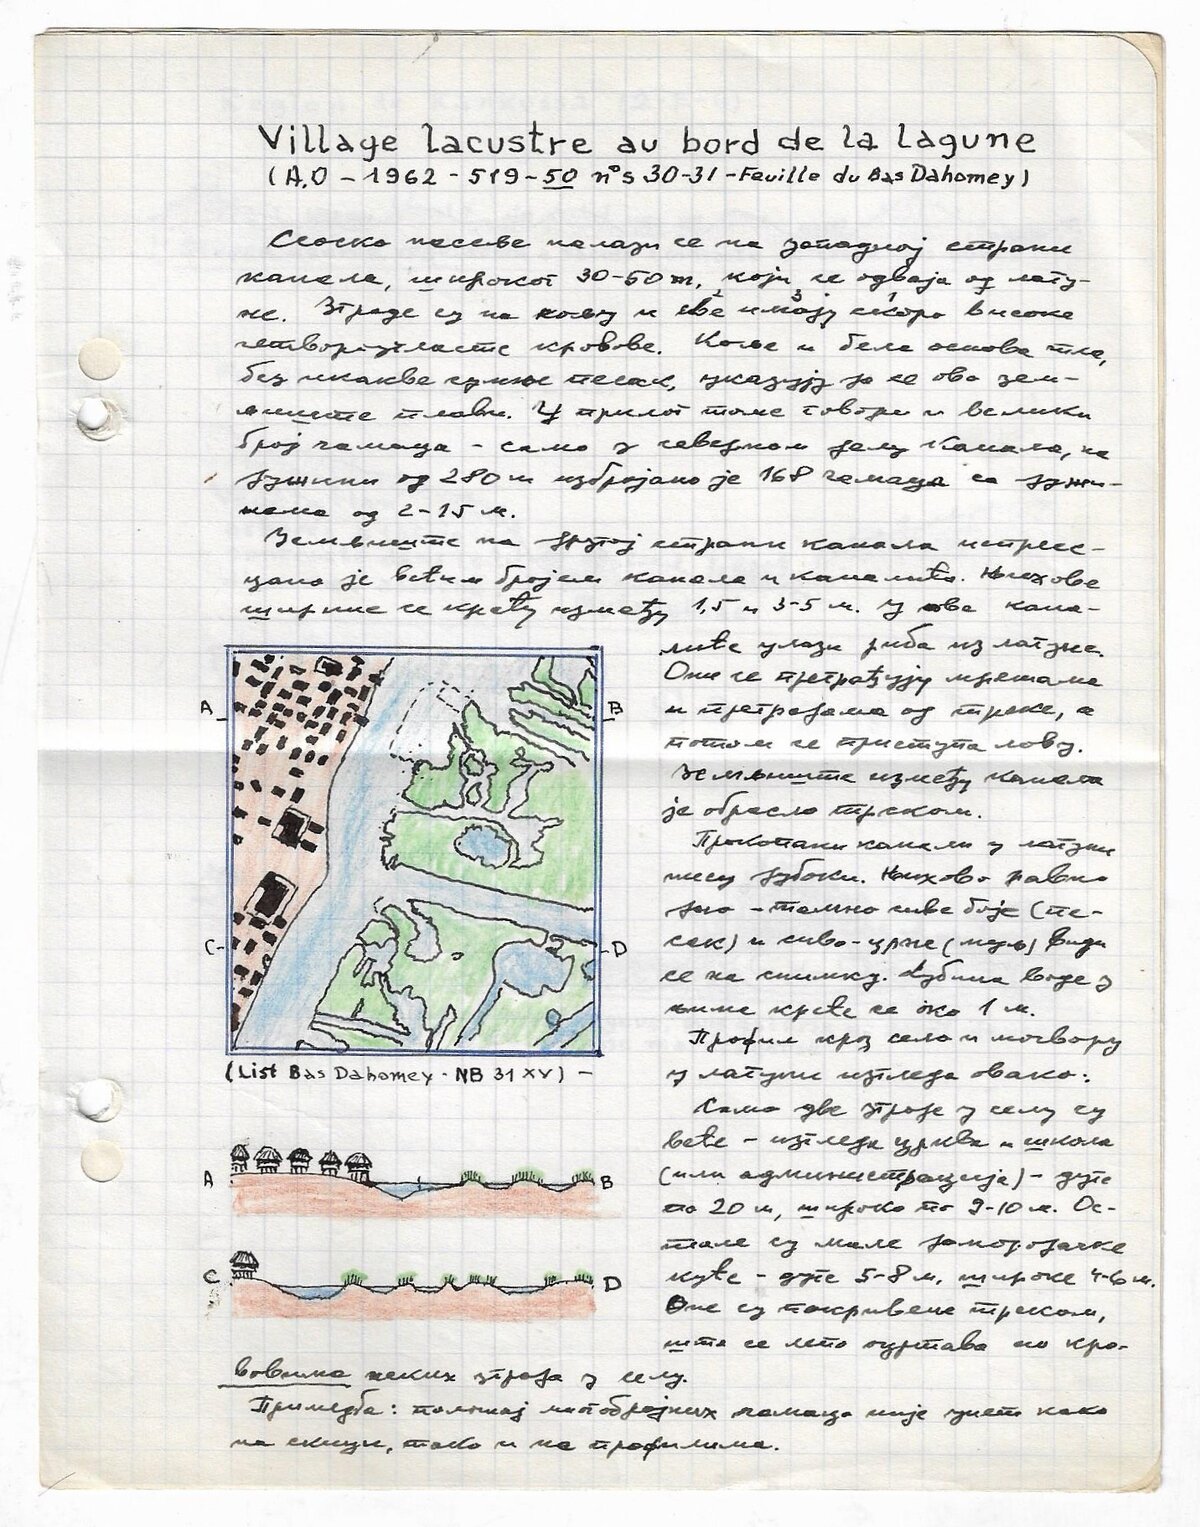 Village lacustre au bord de la lagune
(A.O – 1962 - 519 - 50 n°s 30-31 - Feuille du Bas Dahomey)
Сеоско насеље налази се на западној страни
канала, широког 30-50 m, који се одваја од лагу-
не. Зграде су на кољу и све имају скоро високе
четвороугласте кровове. Коље и бела основа тла,
без икакве сумње песак, указују да се ово зем-
љиште плави. У прилог томе говори и велики
број чамаца - само у северном делу канала, на
дужини од 280 m избројано је 168 чамаца са дужи-
нама од 2-15 м.
Земљиште на другој страни канала испресе-
цано је већим бројем канала и каналића. Њихове
ширине се крећу између 1,5 и 3-5 м. У ове кана-
лиће улази риба из лагуне.
Они се преграђују мрежама
и преградама од трске, а
потом се приступа лову.
Земљиште између канала
је обрасло трском.
Прокопани канали у лагуни
нису дубоки. Њихово равно
дно - тамно сиве боје (пе-
сак) и сиво-црне (муљ) види
се на снимку. Дубина воде у
њима креће се око 1 м.
Профил кроз село и мочвару
у лагуни изгледа овако:
Само две зграде у селу су
веће - изгледа црква и школа
(или администрација) - дуге
по 20 м, широке по 9-10 м. Ос-
тале су мале домородачке
куће - дуге 5-8 м, широке 4-6 м.
Оне су покривене трском,
што се лепо оцртава по кро-
вовима неких зграда у селу.
Примедба: положај многобројних чамаца није унет како
на скици, тако и на профилима.
A
B
C
D
(List Bas Dahomey - NB 31 XV) –
A
B
C
D